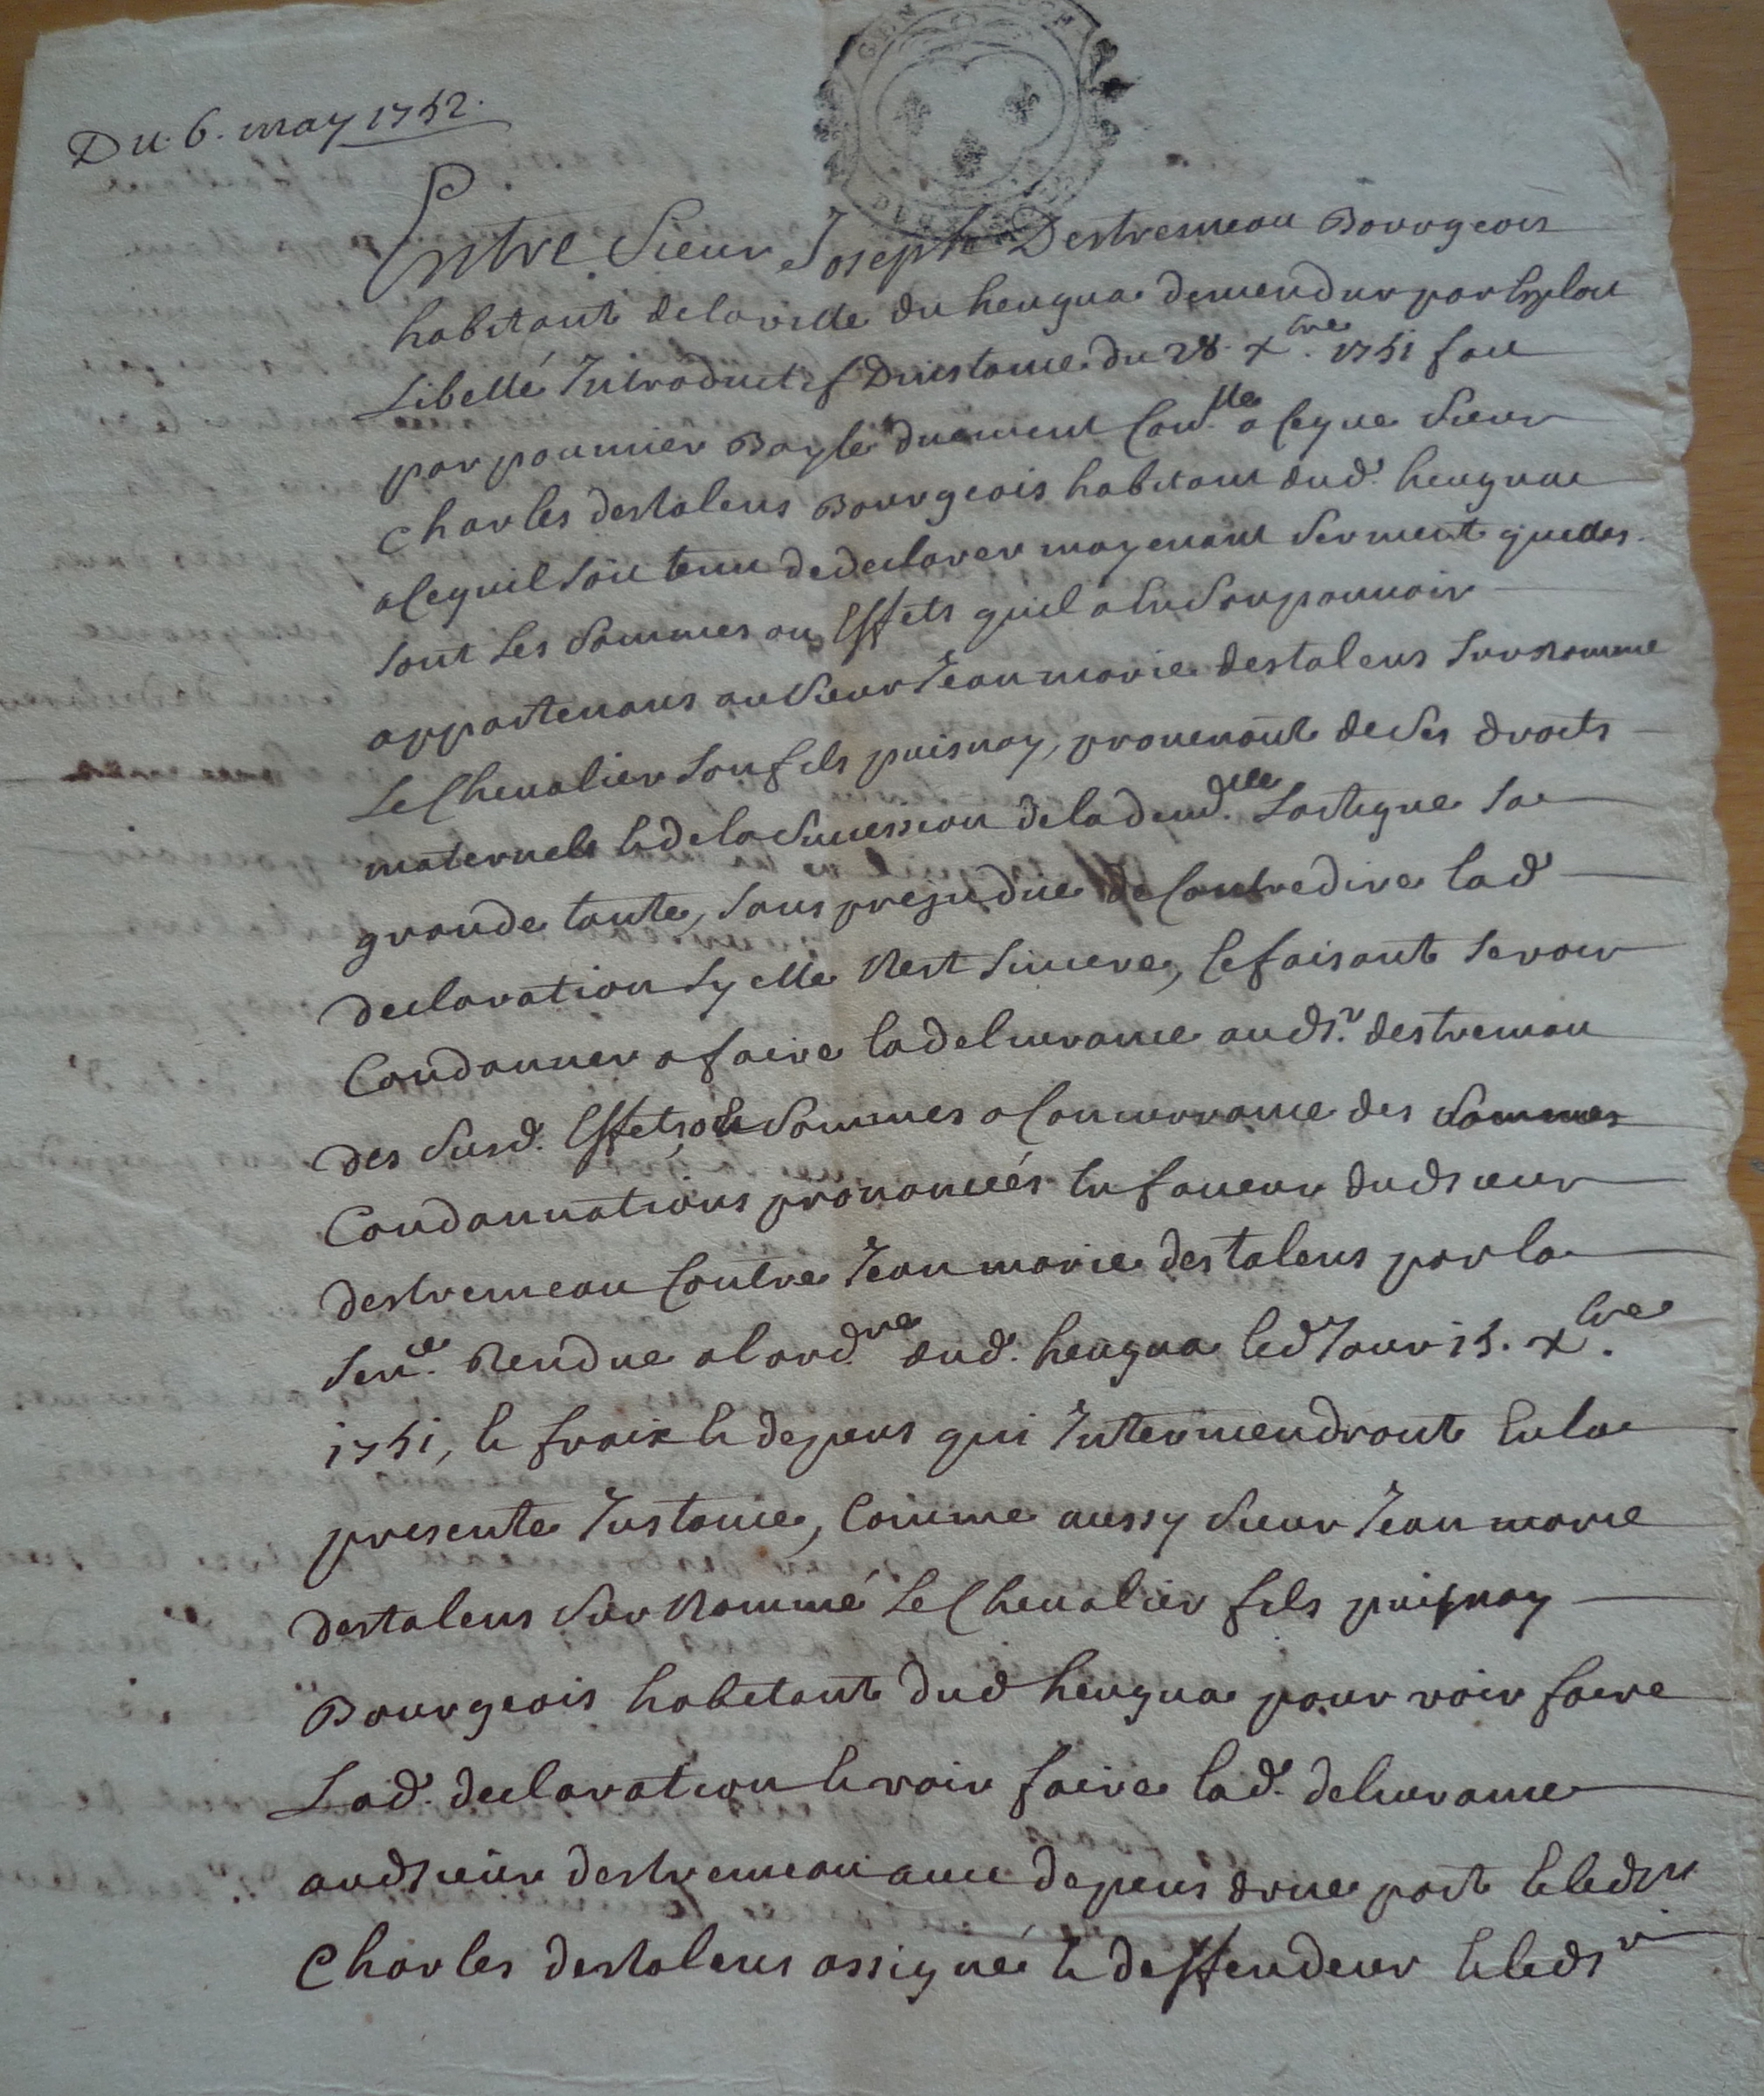 Du. 6. may 1752.
Entre Sieur Joseph Destremeau Bourgeois
habitant de la ville du heugua demendur par Exploit
Libellé Introductif Dinstance du 28. xbre. 1751 fait
par poumier Bayle duement Conllé a ce que Sieur
Charles destalens Bourgeois habitant dud. heugua
a ce quil soit tenu de declarer moyenant Serment quelles
sont Les Sommes ou Effets quil a En Son pouvoir
appartenans au Sieur Jean marie destalens Surnommé
Le Chevalier Son fils puisnay, provenant de Ses droits
maternels et de la Succession de la demdlle Lartigue Sa
grande tante, Sans prejudice de Contredire lad
declaration Sy elle Nest Sincere, Ce faisant Se voir
Condamner a faire la delivrance aud Sr. destremau
des Susd. Effets, et Sommes a Concurrance des Sommes
Condannations prononcées En faveur dud Sieur
destremeau Contre Jean marie destalens par la
Sence. Rendue a lordre dud. heugua led Jour 15. xbre.
1751, et fraix et depens qui Interviendront En la
presente Instance, Comme aussy Sieur Jean marie
destalens Sur Nommé Le Chevalier fils puisnay
Bourgeois habitant dud heugua pour voir faire
Lad. declaration et voir faire lad. delivrance
aud Sieur destremeau avec depens dune part Et led Sr
Charles destalens assigné et deffendeur Et led Sr